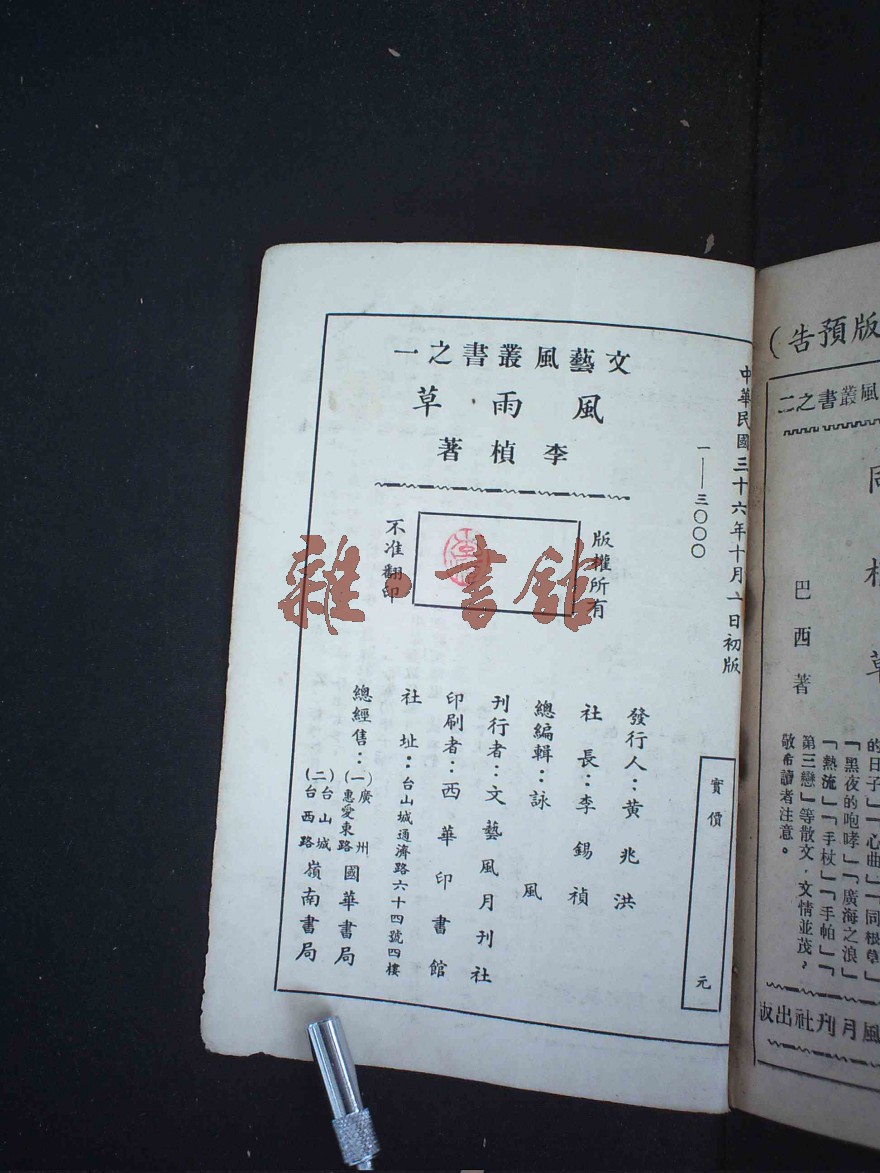 文藝風叢書之一
風雨草
李楨著
版權所有
不准翻印
中華民國三十六年十月一日初版
一——三〇〇〇
實價 元
發行人：黄兆洪
社長：李錫禎
總編輯：詠風
刊行者：文藝風月刊社
印刷者：西華印書館
社址：台山城通濟路六十四號四樓
總經售：
（一）廣州惠愛東路 國華書局
（二）台山城台西路 嶺南書局
雜·書館
版預告）
風叢書之二
草
巴西著
的日子」「心曲」「同根草」
「黑夜的咆哮」「廣海之浪」
「熱流」「手杖」「手帕」「
第三戀」等散文，文情並茂，
敬希讀者注意。
風月刋社出版